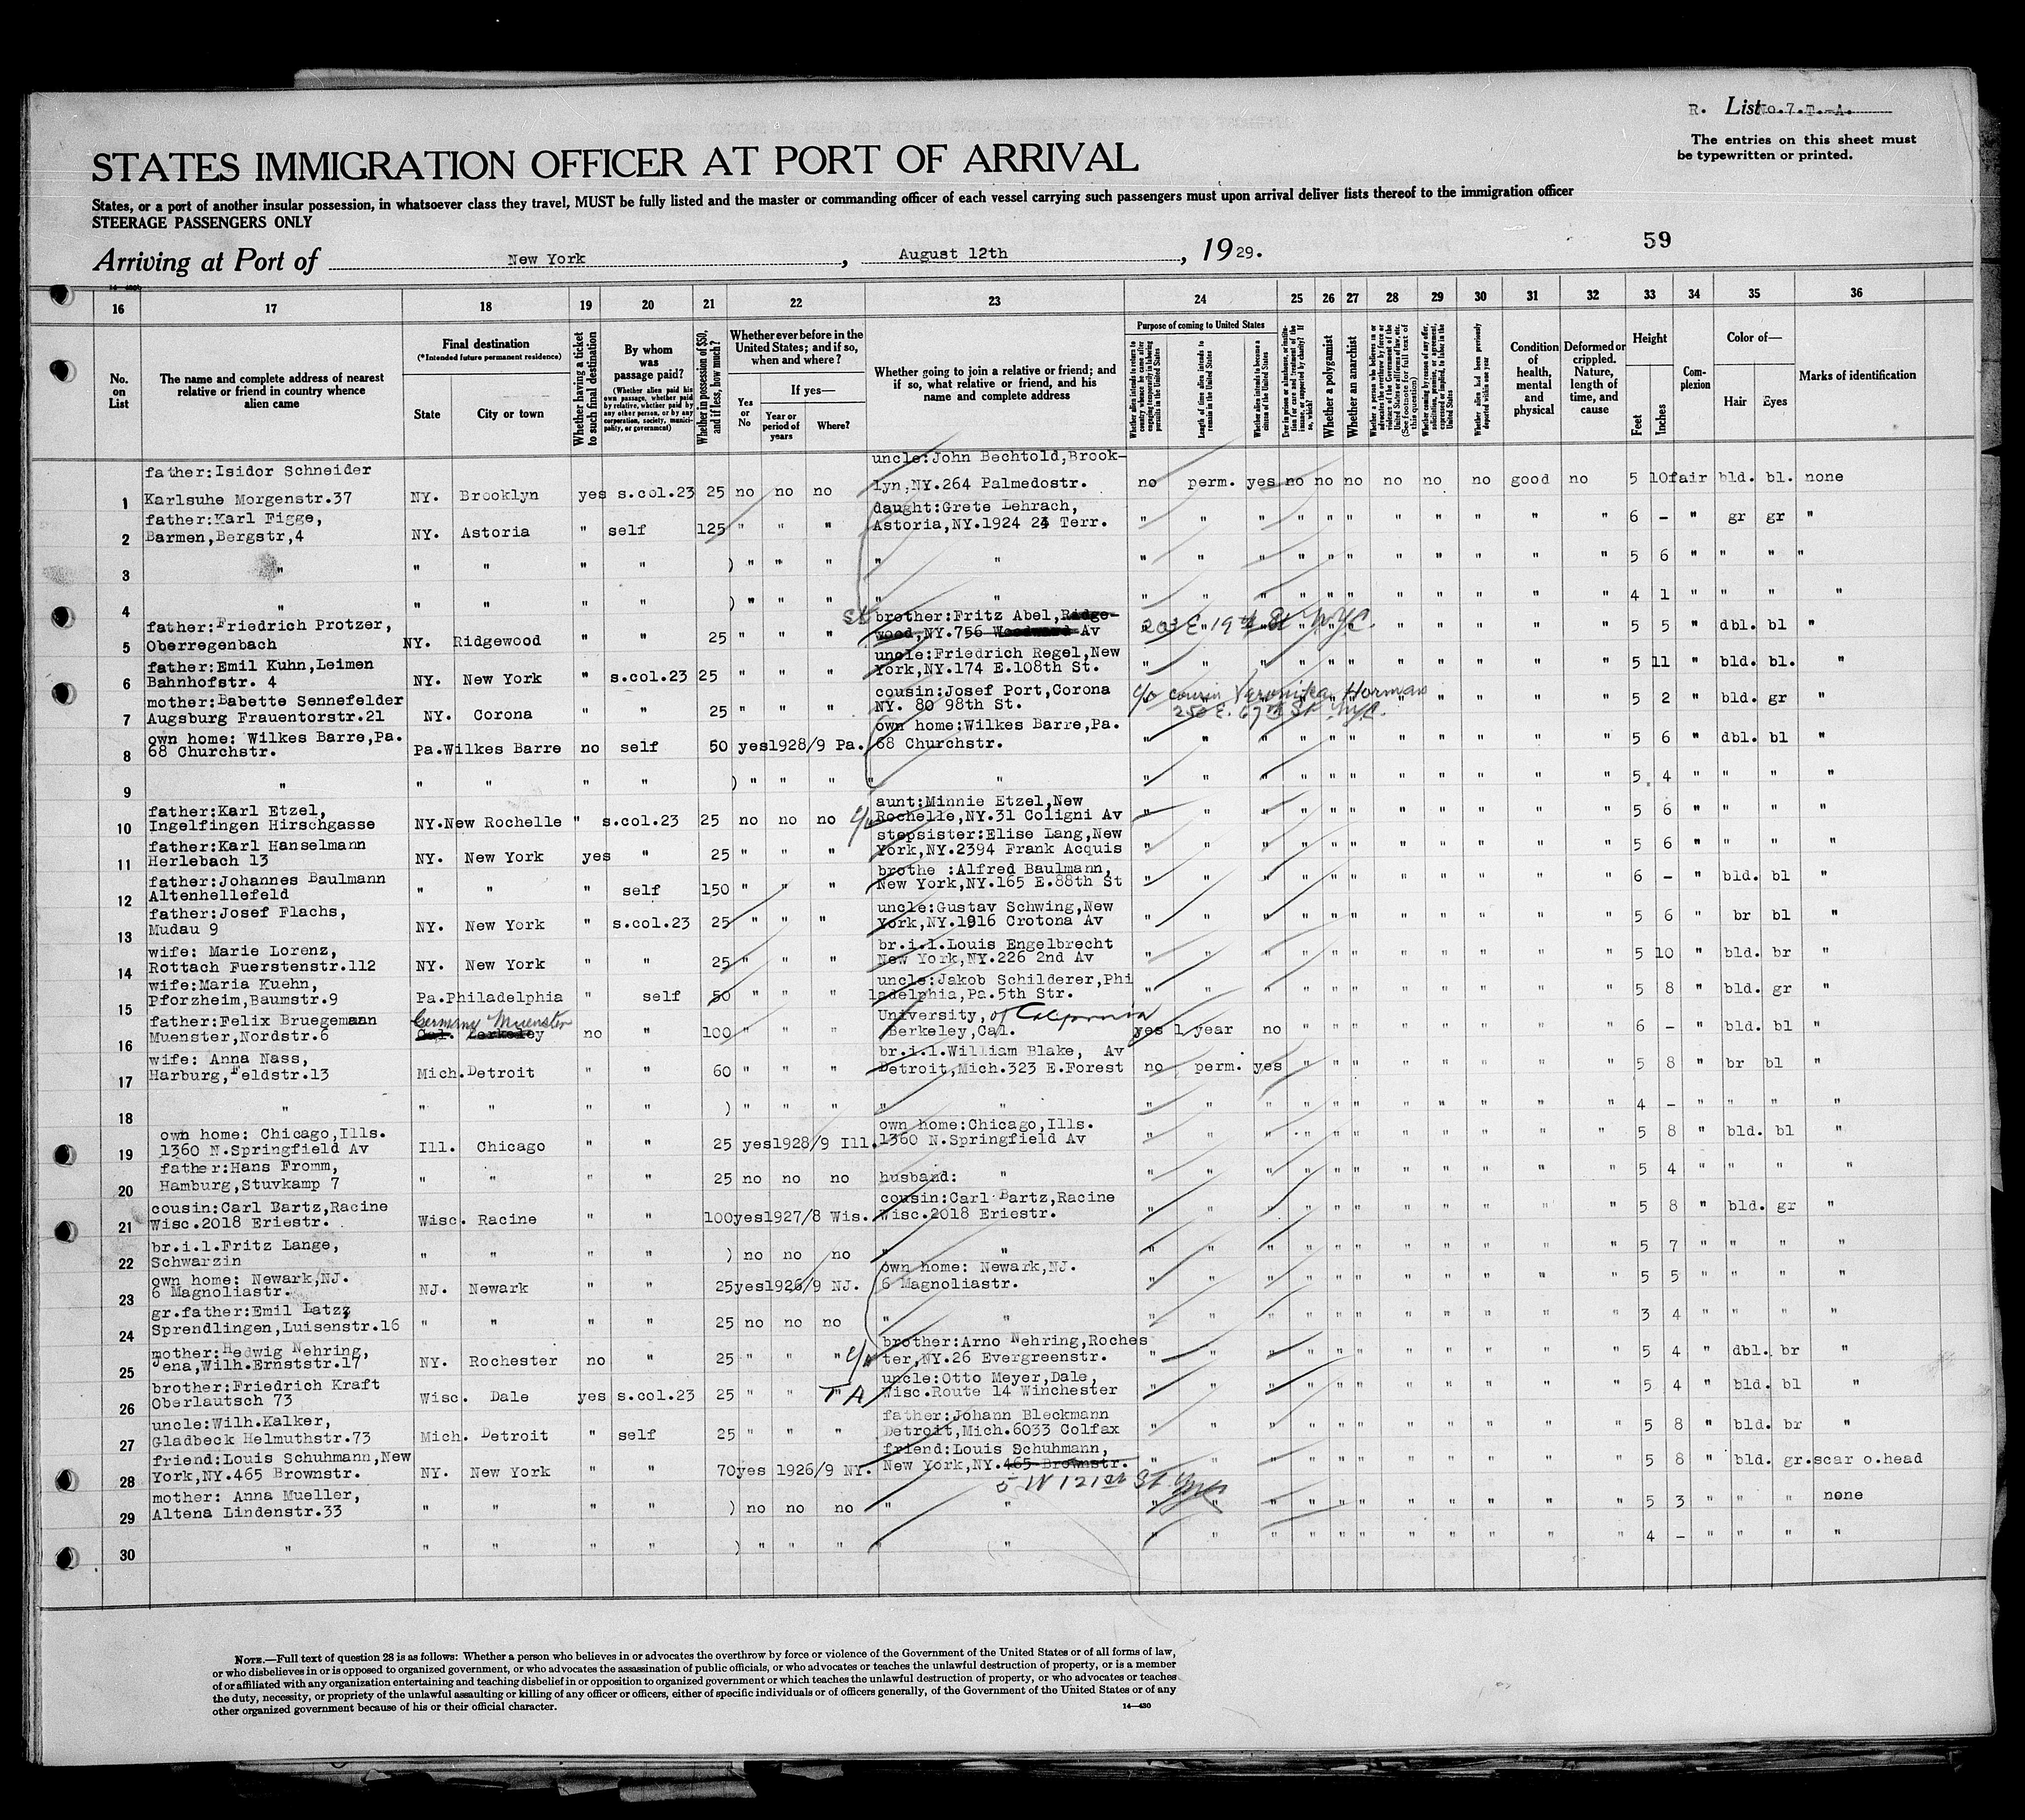 R. List No.7.T.-A.
The entries on this sheet must
be typewritten or printed.
STATES IMMIGRATION OFFICER AT PORT OF ARRIVAL
States, or a port of another insular possession, in whatsoever class they travel, MUST be fully listed and the master or commanding officer of each vessel carrying such passengers must upon arrival deliver lists thereof to the immigration officer
STEERAGE PASSENGERS ONLY
59
Arriving at Port of New York, August 12th, 1929.
16 17 18 19 20 21 22 23 24 25 26 27 28 29 30 31 32 33 34 35 36
No. on List
The name and complete address of nearest relative or friend in country whence alien came
Final destination
(*Intended future permanent residence)
State
City or town
Whether having a ticket to such final destination
By whom was passage paid?
(Whether alien paid his own passage, whether paid by relative, whether paid by any other person, or by any corporation, society, municipality, or government)
Whether in possession of $50, and if less, how much?
Whether ever before in the United States; and if so, when and where?
Yes or No
If yes—
Year or period of years
Where?
Whether going to join a relative or friend; and if so, what relative or friend, and his name and complete address
Purpose of coming to United States
Whether alien intends to return to country whence he came after engaging temporarily in laboring pursuits in the United States
Length of time alien intends to remain in the United States
Whether alien intends to become a citizen of the United States
Ever in prison or almshouse, or institution for care and treatment of the insane, or supported by charity? If so, which?
Whether a polygamist
Whether an anarchist
Whether a person who believes in or advocates the overthrow by force or violence of the Government of the United States or all forms of law, etc. (See footnote for full text of this question)
Whether coming by reason of any offer, solicitation, promise, or agreement, expressed or implied, to labor in the United States
Whether alien had been previously deported within one year
Condition of health, mental and physical
Deformed or crippled. Nature, length of time, and cause
Height
Feet
Inches
Complexion
Color of—
Hair
Eyes
Marks of identification
1 father:Isidor Schneider Karlsuhe Morgenstr.37 NY. Brooklyn yes s.col.23 25 no no no uncle:John Bechtold,Brook-lyn,NY.264 Palmedostr. no perm. yes no no no no no no good no 5 10 fair bld. bl. none
2 father:Karl Figge, Barmen,Bergstr,4 NY. Astoria " self 125 " " " daught:Grete Lehrach, Astoria,NY.1924 24 Terr. " " " " " " " " " " " 6 - " gr gr "
3 " " " " " ) " " " " " " " " " " " " " " " " 5 6 " " " "
4 " " " " " ) " " " " " " " " " " " " " " " " 4 1 " " " "
5 father:Friedrich Protzer, Oberregenbach NY. Ridgewood " " 25 " " " brother:Fritz Abel,Ridge-wood,NY.756 Woodward Av 203 E. 19th St N.Y.C. " " " " " " " " 5 5 " dbl. bl "
6 father:Emil Kuhn,Leimen Bahnhofstr. 4 NY. New York " s.col.23 25 " " " uncle:Friedrich Regel,New York,NY.174 E.108th St. " " " " " " " " " " " 5 11 " bld. bl. "
7 mother:Babette Sennefelder Augsburg Frauentorstr.21 NY. Corona " " 25 " " " cousin:Josef Port,Corona NY. 80 98th St. c/o cousin Veronika Horman 250 E. 67th St NYC. " " " " " 5 2 " bld. gr "
8 own home: Wilkes Barre,Pa. 68 Churchstr. Pa.Wilkes Barre no self 50 yes 1928/9 Pa. own home:Wilkes Barre,Pa. 68 Churchstr. " " " " " " " " " " " 5 6 " dbl. bl "
9 " " " " " ) " " " " " " " " " " " " " " " " 5 4 " " " "
10 father:Karl Etzel, Ingelfingen Hirschgasse NY.New Rochelle " s.col.23 25 no no no c/o aunt:Minnie Etzel,New Rochelle,NY.31 Coligni Av " " " " " " " " " " " 5 6 " " " "
11 father:Karl Hanselmann Herlebach 13 NY. New York yes " 25 " " " stepsister:Elise Lang,New York,NY.2394 Frank Acquis " " " " " " " " " " " 5 6 " " " "
12 father:Johannes Baulmann Altenhellefeld " " " self 150 " " " brothe :Alfred Baulmann, New York,NY.165 E.88th St " " " " " " " " " " " 6 - " bld. bl "
13 father:Josef Flachs, Mudau 9 NY. New York " s.col.23 25 " " " uncle:Gustav Schwing,New York,NY.1916 Crotona Av " " " " " " " " " " " 5 6 " br bl "
14 wife: Marie Lorenz, Rottach Fuerstenstr.112 NY. New York " " 25 " " " br.i.l.Louis Engelbrecht New York,NY.226 2nd Av " " " " " " " " " " " 5 10 " bld. br "
15 wife:Maria Kuehn, Pforzheim,Baumstr.9 Pa.Philadelphia " self 50 " " " uncle:Jakob Schilderer,Phi ladelphia,Pa.5th Str. " " " " " " " " " " " 5 8 " bld. gr "
16 father:Felix Bruegemann Muenster,Nordstr.6 Germany Muenster Cal. Berkeley no " 100 " " " University, of California Berkeley,Cal. yes 1 year no " " " " " " " " 6 - " bld. bl "
17 wife: Anna Nass, Harburg,Feldstr.13 Mich.Detroit " " 60 " " " br.i.l.William Blake, Av Detroit,Mich.323 E.Forest no perm. yes " " " " " " " " 5 8 " br bl "
18 " " " " " ) " " " " " " " " " " " " " " " " 4 - " " " "
19 own home: Chicago,Ills. 1360 N.Springfield Av Ill. Chicago " " 25 yes 1928/9 Ill. own home:Chicago,Ills. 1360 N.Springfield Av " " " " " " " " " " " 5 8 " bld. bl "
20 father:Hans Fromm, Hamburg,Stuvkamp 7 " " " " 25 no no no husband: " " " " " " " " " " " " 5 4 " " " "
21 cousin:Carl Bartz,Racine Wisc.2018 Eriestr. Wisc. Racine " " 100 yes 1927/8 Wis. cousin:Carl Bartz,Racine Wisc.2018 Eriestr. " " " " " " " " " " " 5 8 " bld. gr "
22 br.i.l.Fritz Lange, Schwarzin " " " " ) no no no " " " " " " " " " " " " " 5 7 " " " "
23 own home: Newark,NJ. 6 Magnoliastr. NJ. Newark " " 25 yes 1926/9 NJ. own home: Newark,NJ. 6 Magnoliastr. " " " " " " " " " " " 5 5 " " " "
24 gr.father:Emil Latzz Sprendlingen,Luisenstr.16 " " " " 25 no no no " " " " " " " " " " " " " 3 4 " " " "
25 mother:Hedwig Nehring, Jena,Wilh.Ernststr.17 NY. Rochester no " 25 " " " c/o brother:Arno Nehring,Roches ter,NY.26 Evergreenstr. " " " " " " " " " " " 5 4 " dbl. br "
26 brother:Friedrich Kraft Oberlautsch 73 Wisc. Dale yes s.col.23 25 " " " T A uncle:Otto Meyer,Dale, Wisc.Route 14 Winchester " " " " " " " " " " " 5 4 " bld. bl "
27 uncle:Wilh.Kalker, Gladbeck Helmuthstr.73 Mich. Detroit " self 25 " " " father:Johann Bleckmann Detroit,Mich.6033 Colfax " " " " " " " " " " " 5 8 " bld. br "
28 friend:Louis Schuhmann,New York,NY.465 Brownstr. NY. New York " " 70 yes 1926/9 NY. friend:Louis Schuhmann, New York,NY.465 Brownstr. 5 W 121st St NYC " " " " " " " " " " " 5 8 " bld. gr. scar o.head
29 mother: Anna Mueller, Altena Lindenstr.33 " " " " ) no no no " " " " " " " " " " " " " 5 3 " " " none
30 " " " " " ) " " " " " " " " " " " " " " " " 4 - " " " "
NOTE.—Full text of question 28 is as follows: Whether a person who believes in or advocates the overthrow by force or violence of the Government of the United States or of all forms of law,
or who disbelieves in or is opposed to organized government, or who advocates the assassination of public officials, or who advocates or teaches the unlawful destruction of property, or is a member
of or affiliated with any organization entertaining and teaching disbelief in or opposition to organized government or which teaches the unlawful destruction of property, or who advocates or teaches
the duty, necessity, or propriety of the unlawful assaulting or killing of any officer or officers, either of specific individuals or of officers generally, of the Government of the United States or of any
other organized government because of his or their official character.
14—430